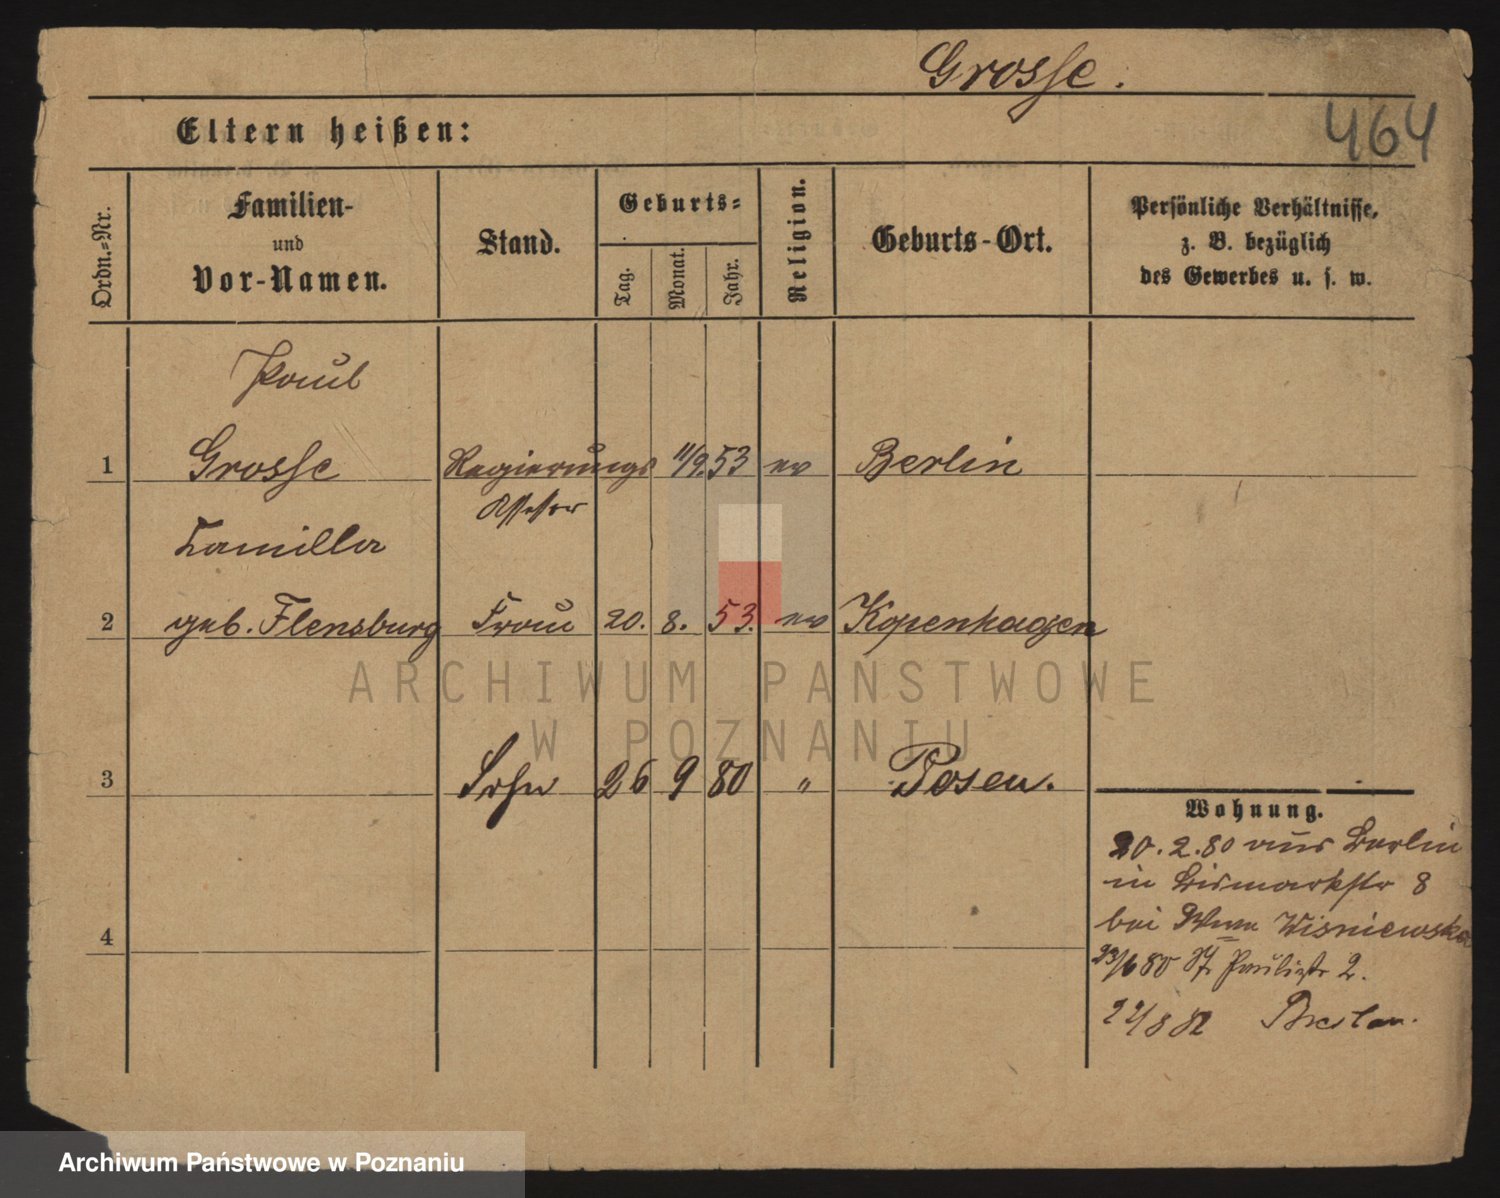 Grosse.
464
Eltern heißen:
Ordn.=Nr.
Familien-
und
Vor-Namen.
Stand.
Geburts=
Tag.
Monat.
Jahr.
Religion.
Geburts-Ort.
Persönliche Verhältnisse,
z. B. bezüglich
des Gewerbes u. s. w.
Paul
1 Grosse Regierungs 11/9. 53 ev Berlin
Assessor
Camilla
2 geb. Flensburg Frau 20. 8. 53. ev Kopenhagen
3 Sohn 26 9 80 " Posen.
4
Wohnung.
20. 2. 80 aus Berlin
in Bismarkstr 8
bei Wwe Wisniewska
23/6 80 St Paulistr 2.
22/8 82 Breslau.
ARCHIWUM PAŃSTWOWE
W POZNANIU
Archiwum Państwowe w Poznaniu